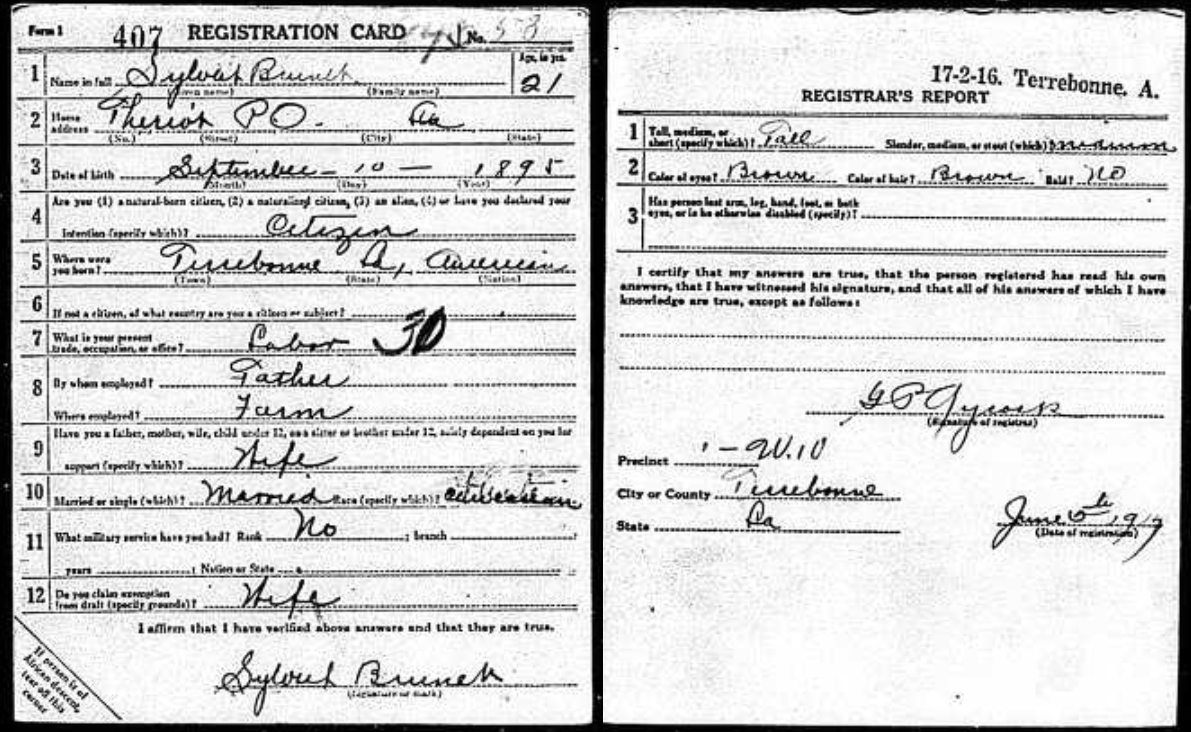 Form 1 407 REGISTRATION CARD No. 58
1 Name in full Sylvest Brunet Age, in yrs. 21
(Given name) (Family name)
2 Home address Theriot P O. La
(No.) (Street) (City) (State)
3 Date of birth September - 10 - 1895
(Month) (Day) (Year)
Are you (1) a natural-born citizen, (2) a naturalized citizen, (3) an alien, (4) or have you declared your
4 intention (specify which)? Citizen
5 Where were you born? Terrebonne La, American
(Town) (State) (Nation)
6 If not a citizen, of what country are you a citizen or subject?
7 What is your present trade, occupation, or office? Labor 30
8 By whom employed? Father
Where employed? Farm
9 Have you a father, mother, wife, child under 12, or a sister or brother under 12, solely dependent on you for
support (specify which)? Wife
10 Married or single (which)? Married Race (specify which)? Caucasian
11 What military service have you had? Rank No ; branch ;
years ; Nation or State
12 Do you claim exemption from draft (specify grounds)? Wife
I affirm that I have verified above answers and that they are true.
Sylvest Brunet
(Signature or mark)
If person is of
African descent,
tear off this
corner
17-2-16. Terrebonne, A.
REGISTRAR'S REPORT
1 Tall, medium, or short (specify which)? Tall Slender, medium, or stout (which)? medium
2 Color of eyes? Brown Color of hair? Brown Bald? No
3 Has person lost arm, leg, hand, foot, or both
eyes, or is he otherwise disabled (specify)?
I certify that my answers are true, that the person registered has read his own
answers, that I have witnessed his signature, and that all of his answers of which I have
knowledge are true, except as follows:
G P Aycock
(Signature of registrar)
Precinct 1 - W.10
City or County Terrebonne
State La June 5th, 1917
(Date of registration)